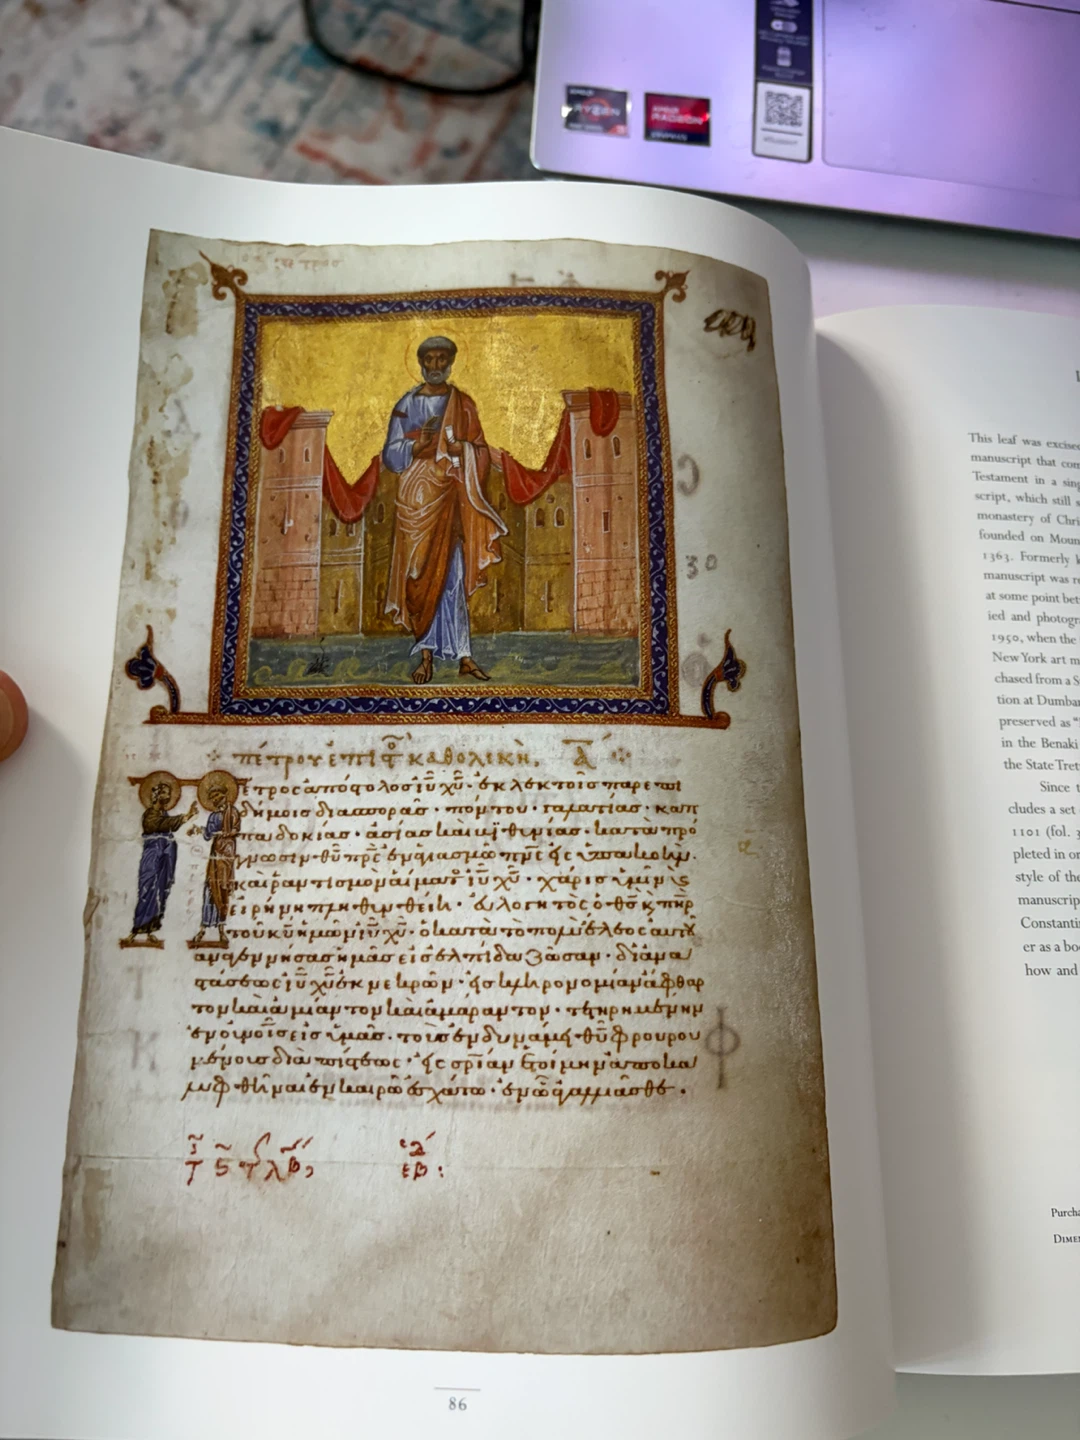 RYZEN
RADEON
πέτρου ἐπιστ καθολικὴ. Α̅
Πέτρος ἀπόστολος ἰῦ χῦ· ἐκλεκτοῖς παρεπι
δήμοις διασπορᾶς· πόντου· γαλατίας· καπ
παδοκίας· ἀσίας καὶ βιθυνίας· κατὰ πρό
γνωσιν θῦ πρ̅ς ἐν ἁγιασμῶ πν̅ς εἰς ὑπακοὴν
καὶ ῥαντισμὸν αἵματος ἰῦ χῦ· χάρις ὑμῖν κ
εἰρήνη πληθυνθείη· εὐλογητὸς ὁ θ̅ς κ πη̅ρ
τοῦ κ̅υ ἡμῶν ἰῦ χῦ· ὁ κατὰ τὸ πολὺ ἔλεος αὐτοῦ
ἀναγεννήσας ἡμᾶς εἰς ἐλπίδα ζῶσαν· δι ἀνα
στάσεως ἰῦ χῦ ἐκ νεκρῶν· εἰς κληρονομίαν ἄφθαρ
τον καὶ ἀμίαντον καὶ ἀμάραντον· τετηρημένην
ἐν οὐνοῖς εἰς ὑμᾶς· τοὺς ἐν δυνάμει θῦ φρουρου
μένους διὰ πίστεως· εἰς σ̅ρίαν ἑτοίμην ἀποκα
λυφθῆναι ἐν καιρῶ ἐσχάτω· ἐν ὧ ἀγαλλιᾶσθε.
86
This leaf was excise
manuscript that com
Testament in a sing
script, which still s
monastery of Chri
founded on Moun
1363. Formerly k
manuscript was r
at some point bet
ied and photogr
1950, when the
New York art m
chased from a S
tion at Dumba
preserved as "
in the Benaki
the State Tret
Since t
cludes a set
1101 (fol. 3
pleted in or
style of the
manuscrip
Constanti
er as a bo
how and
Purcha
DIME